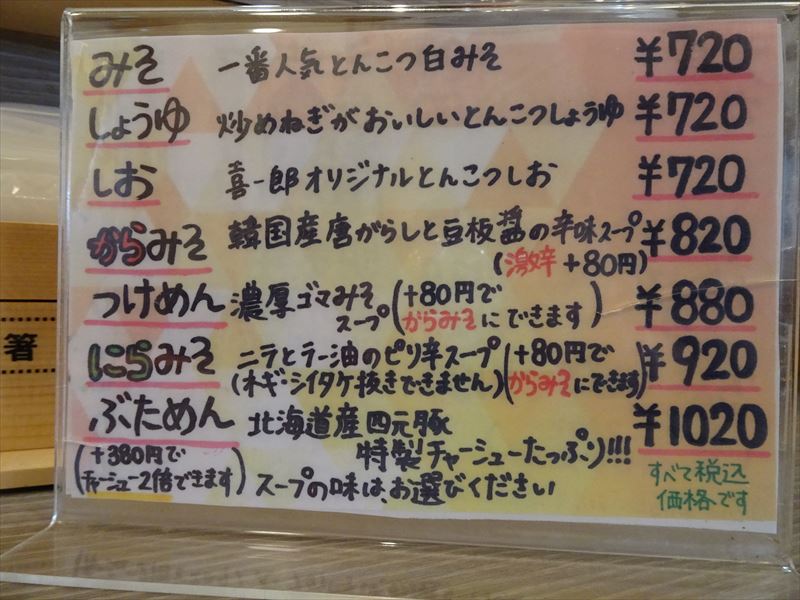 みそ 一番人気とんこつ白みそ ¥720
しょうゆ 炒めねぎがおいしいとんこつしょうゆ ¥720
しお 喜一郎オリジナルとんこつしお ¥720
からみそ 韓国産唐がらしと豆板醤の辛味スープ ¥820
(激辛+80円)
つけめん 濃厚ゴマみそスープ (+80円でからみそにできます) ¥880
にらみそ ニラとラー油のピリ辛スープ (+80円でからみそにできます) ¥920
(ネギ・シイタケ抜きできません)
ぶためん 北海道産四元豚 ¥1020
特製チャーシューたっぷり!!!
(+380円でチャーシュー2倍できます) スープの味は、お選びください
すべて税込
価格です
箸